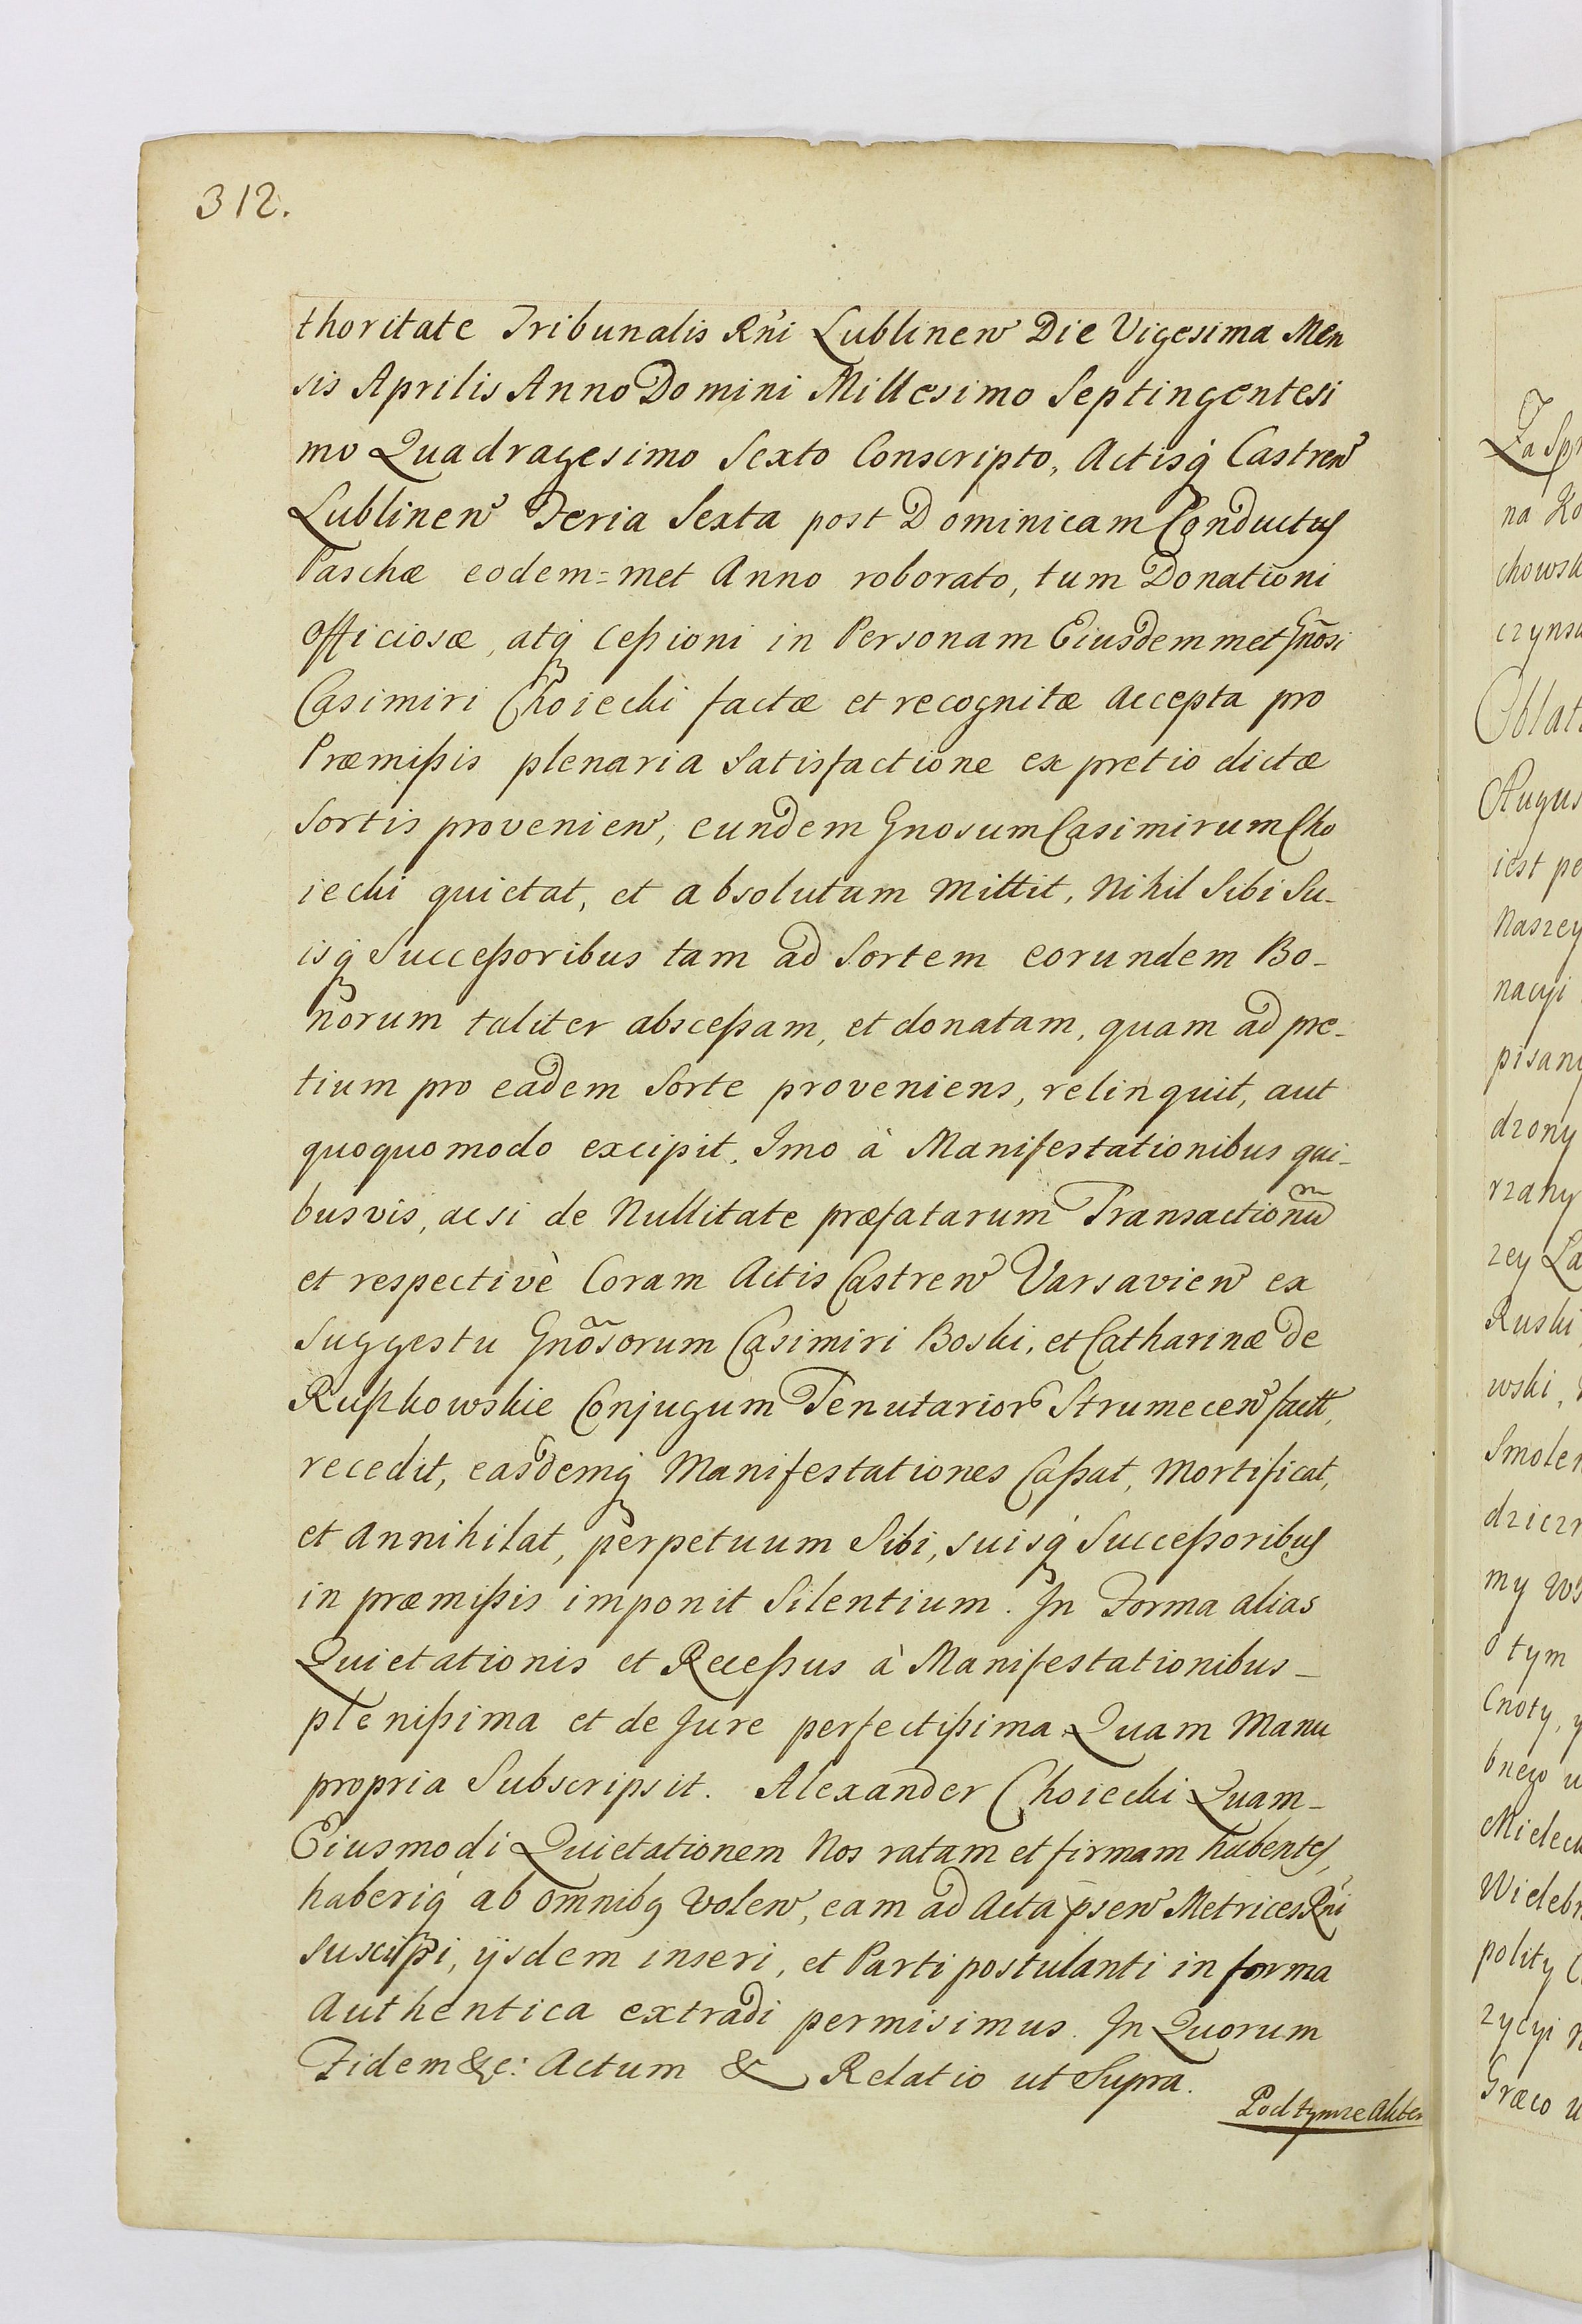 312.
thoritate Tribunalis Rni Lublinen Die Vigesima Men
sis Aprilis Anno Domini Millesimo Septingentesi
mo Quadragesimo Sexto Conscripto, Actisq Castren
Lublinen Feria Sexta post Dominicam Conductus
Paschæ eodem=met Anno roborato, tum Donationi
officiosæ, atq Ceßioni in Personam Eiusdemmet Gnosi
Casimiri Choiecki factæ et recognitæ accepta pro
Præmißis plenaria Satisfactione ex pretio dictæ
Sortis provenien, eundem Gnosum Casimirum Cho
iecki quietat, et absolutum mittit, Nihil Sibi Su-
isq Succeßoribus tam ad Sortem eorundem Bo-
norum taliter absceßam, et donatam, quam ad pre-
tium pro eadem Sorte proveniens, relinquit, aut
quoquomodo excipit, Imo à Manifestationibus qui-
busvis, acsi de Nullitate præfatarum Transactionū
et respectivè Coram Actis Castren Varsavien ex
Suggestu Gnõsorum Casimiri Boski, et Catharinæ de
Rußkowskie Conjugum Tenutarior Strumecen factt,
recedit, easdemq Manifestationes Caßat, Mortificat,
et Annihilat, perpetuum Sibi, suisq Succeßoribus
in præmißis imponit Silentium. In Forma alias
Quietationis et Receßus à Manifestationibus-
plenißima et de Jure perfectißima Quam Manu
propria Subscripsit. Alexander Choiecki Quam-
Eiusmodi Quietationem Nos ratam et firmam habentes,
haberiq ab omnibq Volen, eam ad Acta psen Metrices Rni
suscipi, ijsdem inseri, et Parti postulanti in forma
Authentica extradi permisimus. In Quorum
Fidem &c: Actum & Relatio ut Supra.
Pod tymże Akte
Za Sp
na Ko
chowsk
czyns
Oblat
Augus
iest pe
Naszey
nacyi
pisany
drony
rzany
zey La
Ruski
wski,
Smolen
dziczn
my ws
o tym
Cnoty, y
bnego u
Mieleck
Wielebn
polity C
zycyi n
Græco u